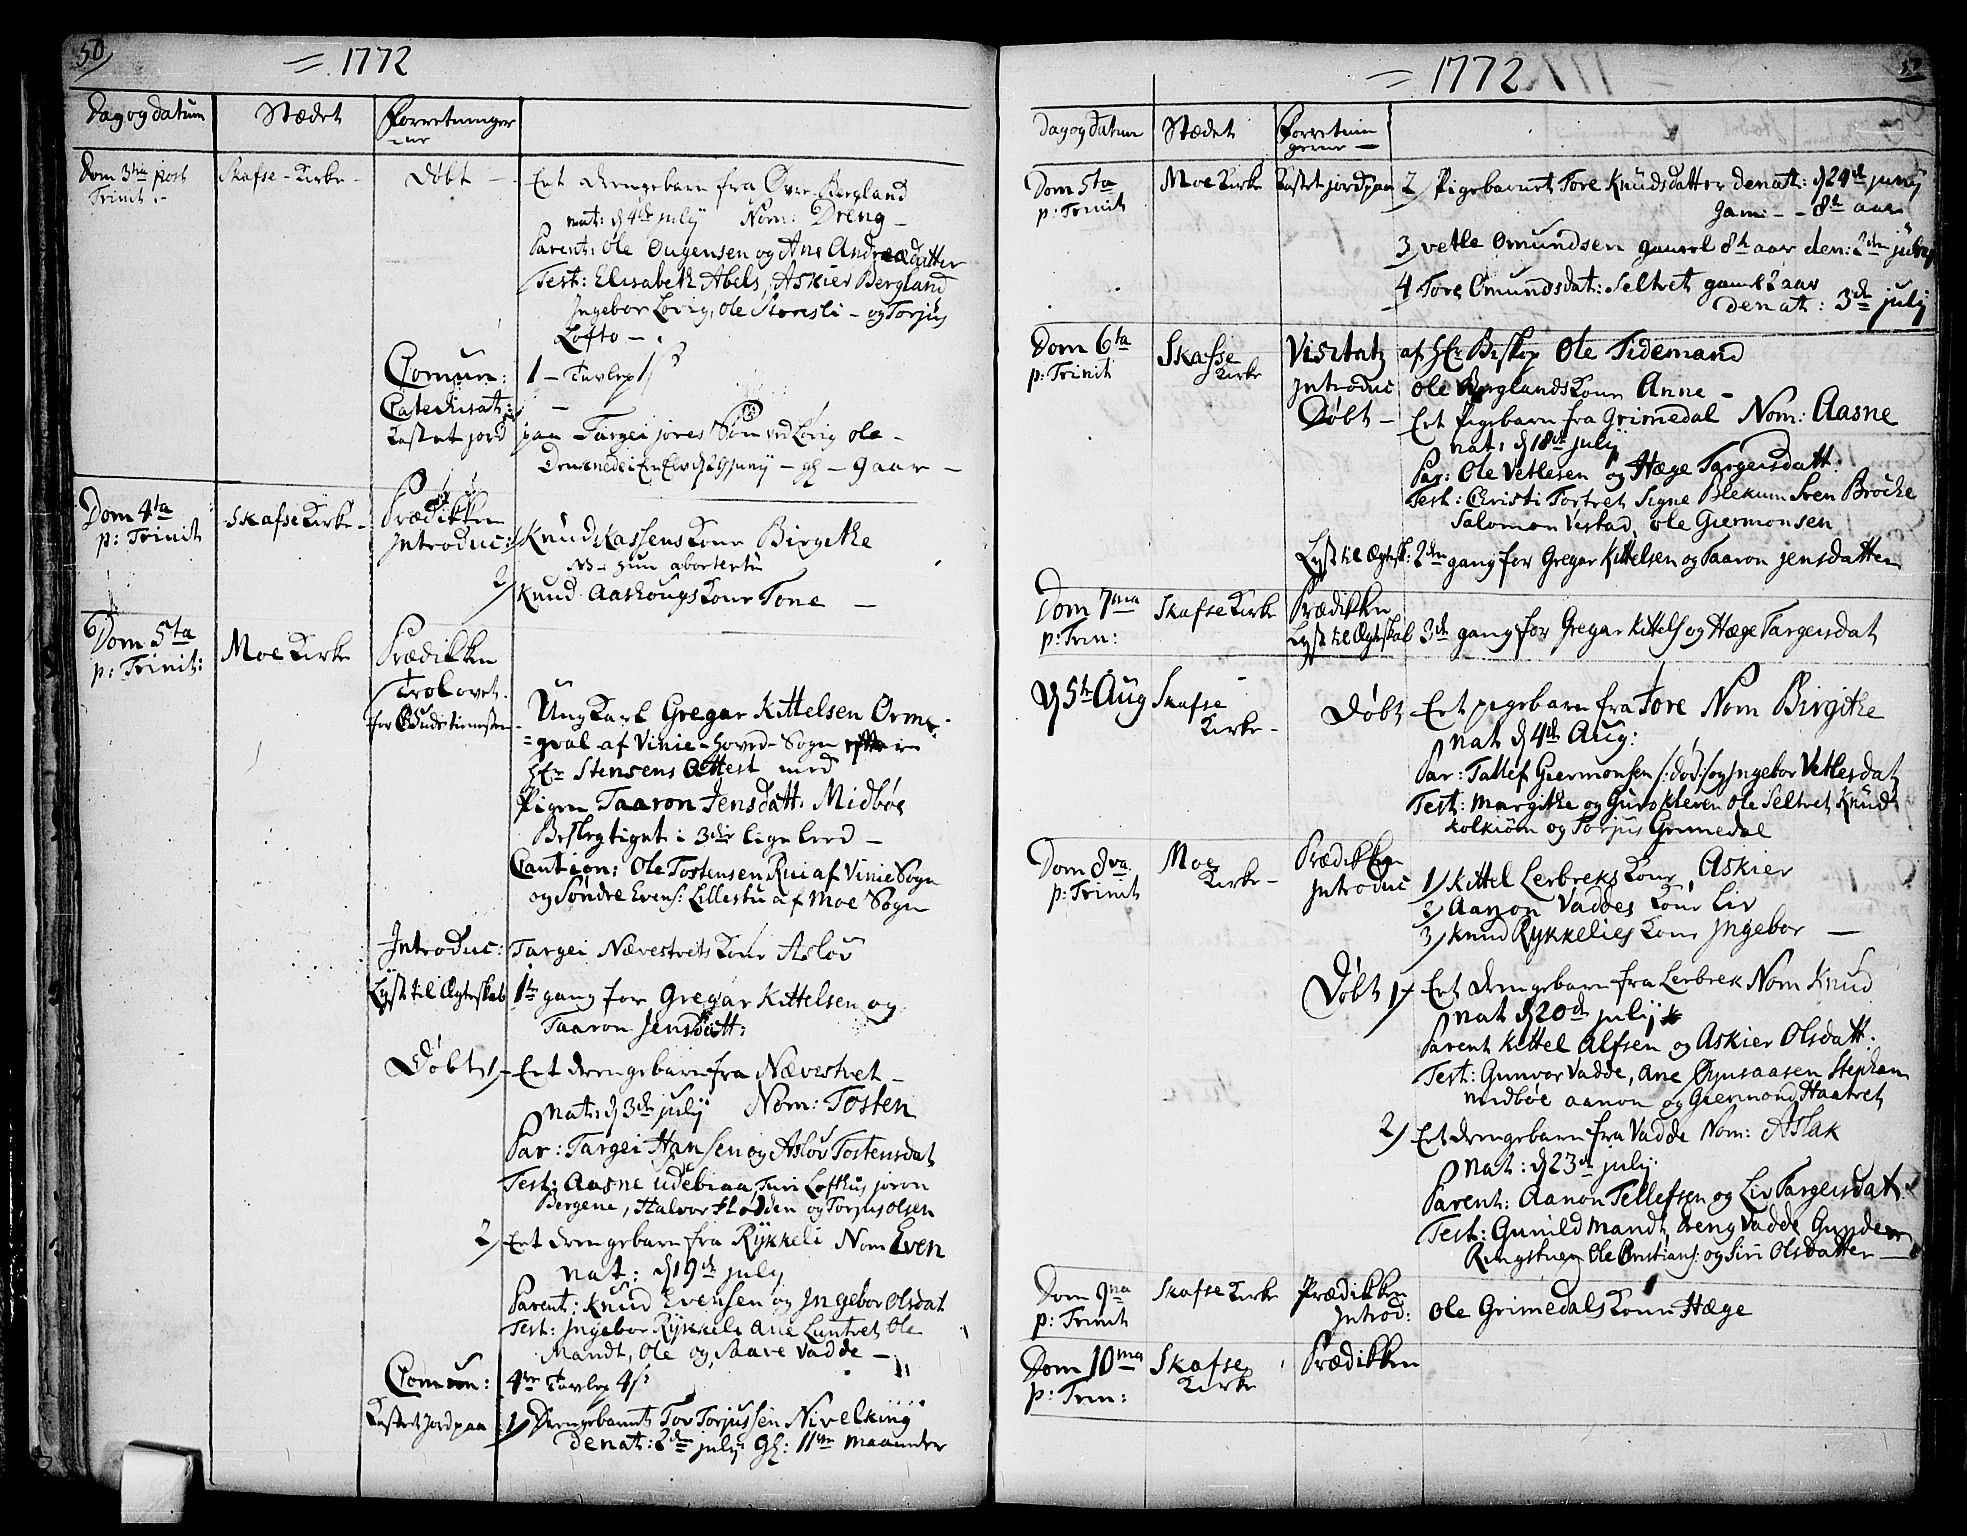 50
= 1772
Dag og datum Stædet Forretninger
ne
Dom 3tia post Skafse - Kirke - Døbt - Eet drengebarn fra Øvre Bergland
Trinit: nat: d 4de july Nom: Dreng -
Parent: Ole Ougensen og Ane Andreædatter
Test: Elisabeth Abels, Askier Bergland
Ingebor Lovig, Ole - og Torjus
Lofto -
Comun: 1 - Tavlep 1 s
Catechisat: -
Kastet jord paa - Targei jores Søn ved Lovig Ole -
d 29 junij - gl - 9 aar -
Dom 4ta Skafse Kirke - Prædikken
p: Trinit Introduc: 1/ Knud Kassens Kone Birgithe
NB - hun aborterte
2/ Knud Aashougs Kone Tone -
Dom 5ta Moe Kirke Prædikken
p: Trinit:
Trolovet Ung Karl Gregar Kittelsen Orme-
for Bundetienesten = gral af Vinie - Hoved - Sogn
Hr Stensens Attest med
Pigen Taaron Jensdatt: Midbøe
Beslegtiget i 3die lige leed -
Caution: Ole Tostensen Rui af Vinie Sogn
og Søndre Evens: Lillestu af Moe Sogn
Introduc: Targei Nævestvets Kone Aslov
Lyst til Ægteskab 1te gang for Gregar Kittelsen og
Taaron Jensdatt:
Døbt 1/ - Eet drengebarn fra Nævestvet -
Nat: d 3de july Nom: Tosten
Par: Targei Hansen og Aslov Tostensdat
Test: Aasne Udebiaa, Turi Lofthus joron
Bergene, Halvor Hodden og Torjus Olsen
2/ Eet drengebarn fra Rykkeli Nom Even
nat: d 19de july
Parent: Knud Evensen og Ingebor Olsdat
Test: Ingebor Rykkeli Ane Luntvet Ole
Mandt, Ole og Saave Vadde -
Comun: 4re Tavlep 4 s
Kastet Jord paa: 1/ Drengebarnet Tov Torjussen Nivelking
denat: 2den july gl: 11ve maaneder
= 1772
Dag og datum Stædet Forretnin
gerne -
Dom 5ta Moe Kirke Kastet jord paa 2/ Pigebarnet Tore Knudsdatter denat: d 24de junij
p: Trinit gaml - - 8te aar
3 vetle Omundsen gammel 8te aar den: 2den july
4 Tore Omundsdat: Seltvet gaml 2 aar
denat: 3de julij
Dom 6ta Skafse Visitatz af Hr Biskop Ole Tidemand
p: Trinit Kirke Introduc Ole Berglands Kone Anne -
Døbt - Eet Pigebarn fra Grimedal Nom: Aasne
nat: d 18de julij
Par: Ole Vetlesen og Hæge Targeisdatt:
Test: Christi Tortvet Signe Blekum Sven Brocke
Salomon Vestad, Ole Giermonsen
Lyst til Ægtesk: 2den gang for Gregar Kittelsen og Taaron jensdatter
Dom 7ma Skafse Kirke Prædikken
p: Trin: Lyst til Ægteskab 3de gang for Gregar Kittels og Hæge Targeisdat
d 5te Aug Skafse Døbt - Eet pigebarn fra Tore Nom Birgithe
Kirke - nat d 4de Aug:
Par: Tallef Giermonsen /: død :/ og Ingebor Vetlesdat
Test: Margithe og Guro Kleven Ole Seltvet Knud
Kolkiøen og Torjus Grimedal
Dom 8va Moe Prædikken
p: Trinit Kirke - Introduc 1/ Kittel Lerbreks Kone Askier
2/ Aanon Vaddes Kone Liv
3/ Knud Rykkelies Kone Ingebor -
Døbt 1/ Eet drengebarn fra Lerbrek Nom Knud
nat d 20de julij
Parent Kittel Alfsen og Askier Olsdatt:
Test: Gunvor Vadde, Ane Øynsaasen Stephan
midbøe aanon og Giermond Haatvet
2/ Eet drengebarn fra Vadde Nom: Aslak
Nat: d 23de july
Parent: Aanon Tellefsen og Liv Targeisdat
Test: Gunild Mandt, Dreng Vadde Gunder
Ringstuen Ole Cristians: og Siri Olsdatter -
Dom 9na Skafse Kirke Prædikken
p: Trinit Introd: Ole Grimedals Kone Hæge
Dom 10ma Skafse Prædikken
p: Trin: Kirke